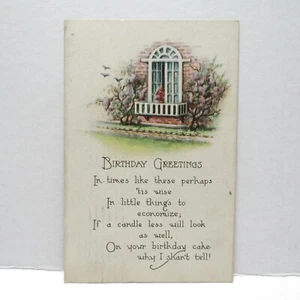 BIRTHDAY GREETINGS
In times like these perhaps
'tis wise
In little things to
economize;
If a candle less will look
as well,
On your birthday cake
why I shan't tell!